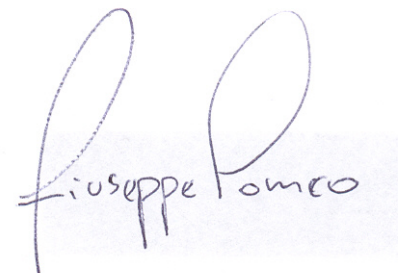 Giuseppe Romeo